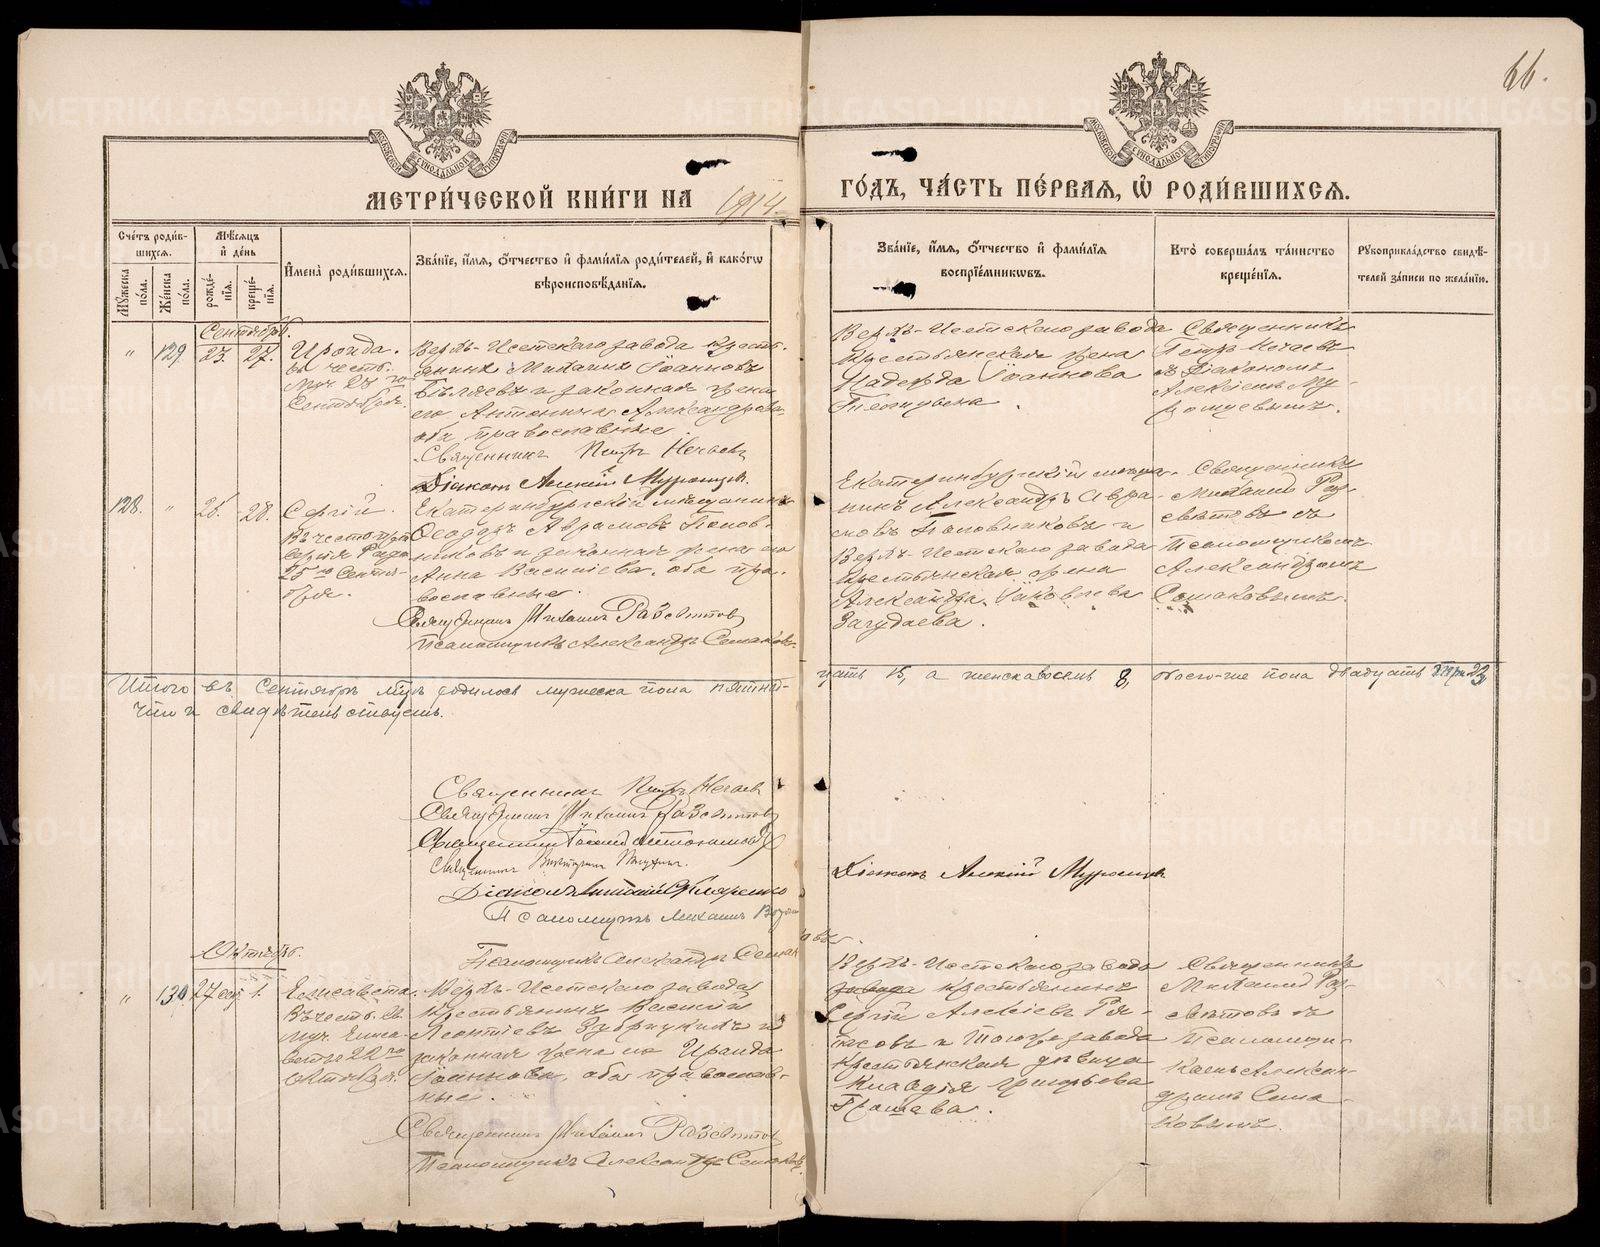 66.
МЕТРИ́ЧЕСКОЙ КНИ́ГИ НА 1914
ГО́ДЪ, ЧА́СТЬ ПЕ́РВАЯ, Ѡ҆ РОДИ́ВШИХСЯ.
Сче́тъ роди́в-
шихся.
Мꙋ́жеска по́ла.
Же́нска по́ла.
Мѣ́сяцъ
и҆ де́нь
рожде́-
нїя.
креще́-
нїя.
И҆мена̀ роди́вшихся.
Зва́нїе, и҆́мя, ѻ҆́тчество и҆ фами́лїя роди́телей, и҆ како́гѡ
вѣроисповѣ́данїя.
Зва́нїе, и҆́мя, ѻ҆́тчество и҆ фами́лїя
воспрїе́мниковъ.
Кто̀ соверша́лъ та́инство
креще́нїя.
Рꙋкоприкла́дство свидѣ́-
телей за́писи по жела́нїю.
Сентябрь.
" 129 23. 27.
Ироида.
въ честь
муч. 23 го
Сентября.
Верхъ-Исетскаго завода кресть-
янинъ Михаилъ Іоанновъ
Бѣляевъ и законная жена
его Антонина Александрова
оба православные.
Священникъ Петръ Нечаевъ
Діаконъ Алексій Муромцевъ.
Верхъ-Исетскаго завода
крестьянская жена
Надежда Іоаннова
Священникъ
Петръ Нечаевъ
съ Діакономъ
Алексіемъ Му-
ромцевымъ.
128. " 26. 28.
Сергій.
Въ честь преп.
Сергія Радо.
25 го Сентя-
бря.
Екатеринбургскій мѣщанинъ
Ѳеодоръ Аврамовъ Полов-
никовъ и законная жена его
Анна Василіева, оба пра-
вославные.
Священникъ Михаилъ Разсвѣтовъ
Псаломщикъ Александръ Семаковъ
Екатеринбургскій мѣща-
нинъ Александръ Авра-
мовъ Половниковъ и
Верхъ-Исетскаго завода
крестьянская жена
Александра Іаковлева
Загудаева.
Священникъ
Михаилъ Раз-
свѣтовъ съ
Псаломщикомъ
Александромъ
Семаковымъ.
Итого въ Сентябрѣ мѣс. родилось мужеска пола пятнад-
цать 15, а женска восемь 8, обоего-же пола двадцать три 23,
что и свидѣтельствуемъ.
Священникъ Петръ Нечаевъ
Священникъ Михаилъ Разсвѣтовъ
Священникъ
Священникъ
Діаконъ
Псаломщикъ Михаилъ
Діаконъ Алексій Муромцевъ
Псаломщикъ Александръ Семаковъ.
Октябрь.
" 130 27 сен. 1.
Елисавета.
Въ честь св.
муч. Елиса-
веты 22 го
октября.
Верхъ-Исетскаго завода
крестьянинъ Василій
Леонтіевъ Зубрицкихъ и
законная жена его Ираида
Іоаннова, оба православ-
ные.
Священникъ Михаилъ Разсвѣтовъ
Псаломщикъ Александръ Семаковъ
Верхъ-Исетскаго завода
завода крестьянинъ
Сергій Алексіевъ Ря-
совъ и Того же завода
крестьянская дѣвица
Клавдія Григорьева
Священникъ
Михаилъ Раз-
свѣтовъ съ
Псаломщи-
комъ Алексан-
дромъ Сема-
ковымъ.
METRIKI.GASO-URAL.RU